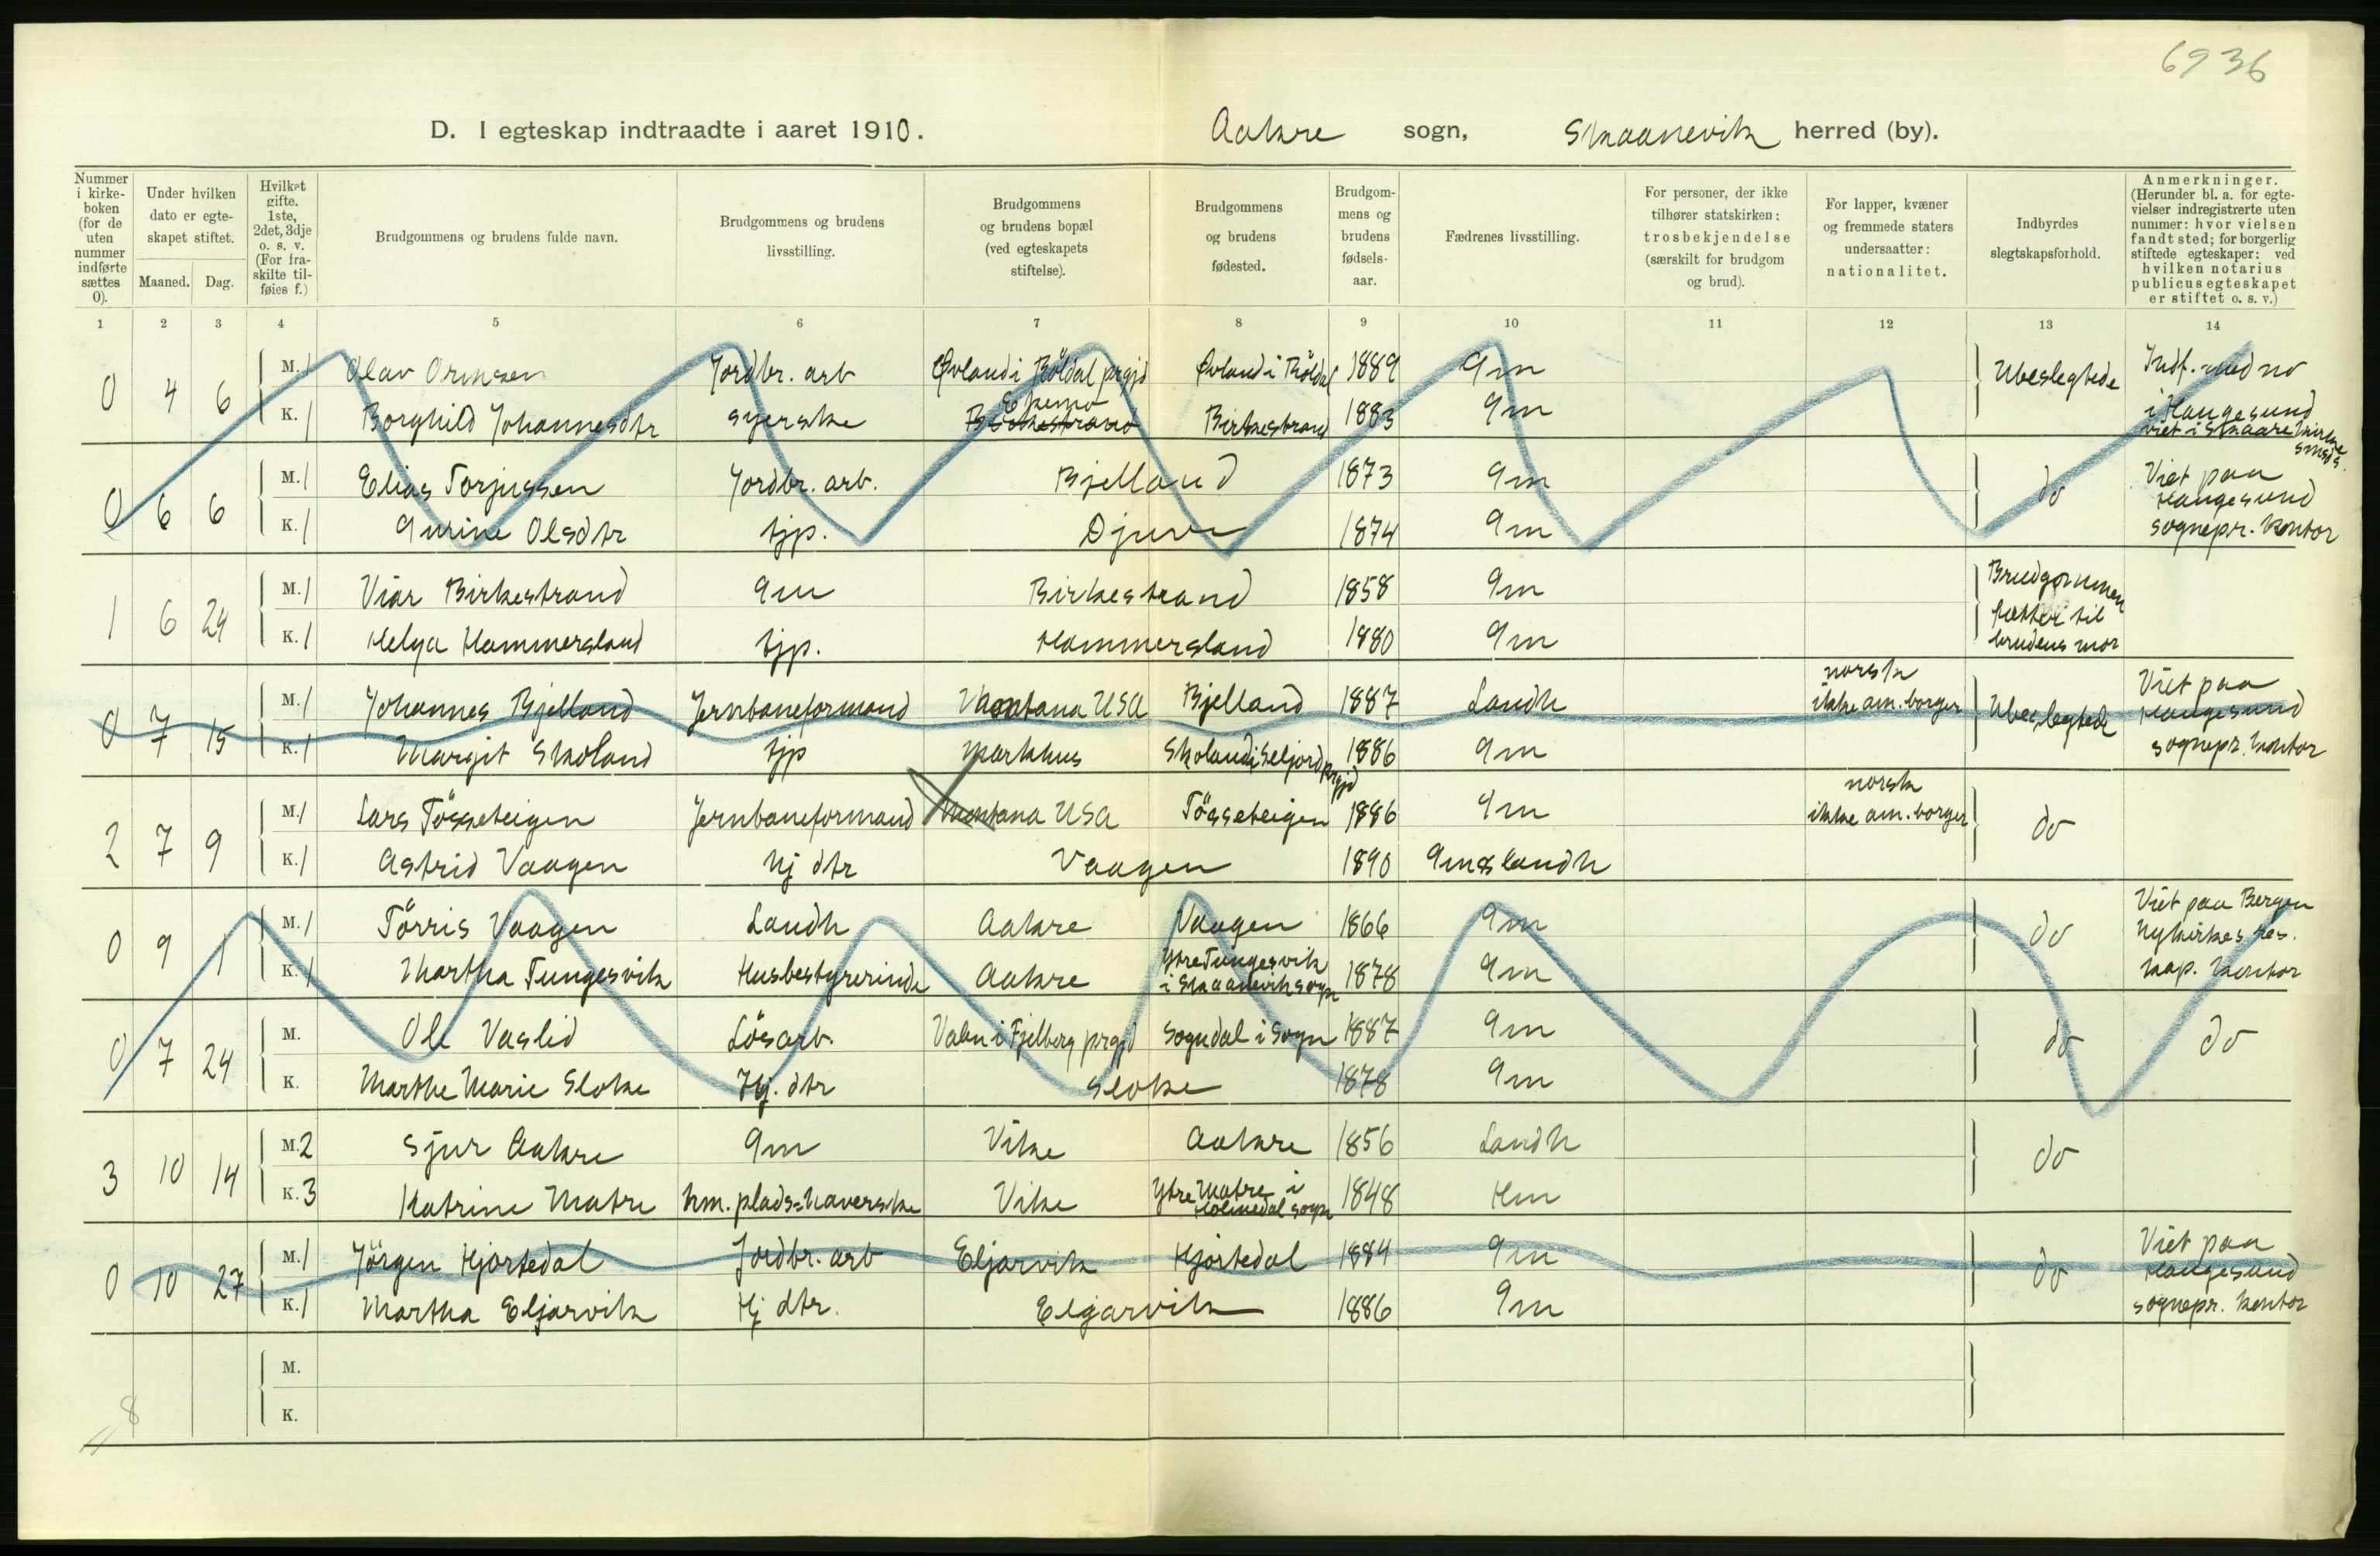 6936
D. I egteskap indtraadte i aaret 1910. Aakre sogn, Skaanevik herred (by).
Nummer i kirke-boken (for de uten nummer indførte sættes 0).
Under hvilken dato er egte-skapet stiftet.
Maaned. Dag.
Hvilket gifte. 1ste, 2det, 3dje o. s. v. (For fra-skilte til-føies f.)
Brudgommens og brudens fulde navn.
Brudgommens og brudens livsstilling.
Brudgommens og brudens bopæl (ved egteskapets stiftelse).
Brudgommens og brudens fødested.
Brudgom-mens og brudens fødsels-aar.
Fædrenes livsstilling.
For personer, der ikke tilhører statskirken: trosbekjendelse (særskilt for brudgom og brud).
For lapper, kvæner og fremmede staters undersaatter: nationalitet.
Indbyrdes slegtskapsforhold.
Anmerkninger. (Herunder bl. a. for egte-vielser indregistrerte uten nummer: hvor vielsen fandt sted; for borgerlig stiftede egteskaper: ved hvilken notarius publicus egteskapet er stiftet o. s. v.)
1 2 3 4 5 6 7 8 9 10 11 12 13 14
0 4 6 M. 1 Olav Ormsen Jordbr. arb Øvland i Röldal prgjd Øvland i Röldal 1889 Gm Ubeslegtede Indf. med no
K. 1 Borghild Johannesdtr syerske Birkestrand Birkestrand 1883 Gm i Haugesund
viet i Skaare kirke
0 6 6 M. 1 Elias Torjussen Jordbr. arb. Bjelland 1873 Gm do Viet paa Haugesund
K. 1 Gurine Olsdtr tjp. Djuve 1874 Gm sognepr. kontor
1 6 24 M. 1 Viar Birkestrand Gm Birkestrand 1858 Gm Brudgommen
fætter til
K. 1 Helga Hammersland tjp. Hammersland 1880 Gm brudens mor
0 7 15 M. 1 Johannes Bjelland Jernbaneformand Montana USA Bjelland 1887 Landh norsk ikke am. borger Ubeslegtede Viet paa Haugesund
K. 1 Margit Skoland tjp Markhus Skoland i Seljord prgjd 1886 Gm sognepr. kontor
2 7 9 M. 1 Lars Tösseteigen Jernbaneformand Montana USA Tösseteigen 1886 Gm norsk ikke am. borger do
K. 1 Astrid Vaagen Hj dtr Vaagen 1890 Gm & landh
0 9 1 M. 1 Törris Vaagen Landh Aakre Vaagen 1866 Gm do Viet paa Bergen
Nykirkes res.
K. 1 Martha Tungesvik Husbestyrerinde Aakre Ytre Tungesvik i Skaanevik sogn 1878 Gm kap. kontor
0 7 24 M. Ole Vaslid Lösarb. Valen i Fjelberg prgjd Sogndal i Sogn 1887 Gm do do
K. Marthe Marie Sloke Hj. dtr Sloke 1878 Gm
3 10 14 M. 2 Sjur Aakre Gm Vike Aakre 1856 Landh do
K. 3 Katrine Matre hm. plads-haverske Vike Ytre Matre i Holmedal sogn 1848 Hm
0 10 27 M. 1 Jörgen Hjortedal Jordbr. arb Eljarvik Hjortedal 1884 Gm do Viet paa Haugesund
K. 1 Martha Eljarvik Hj dtr. Eljarvik 1886 Gm sognepr. kontor
M.
K.
8